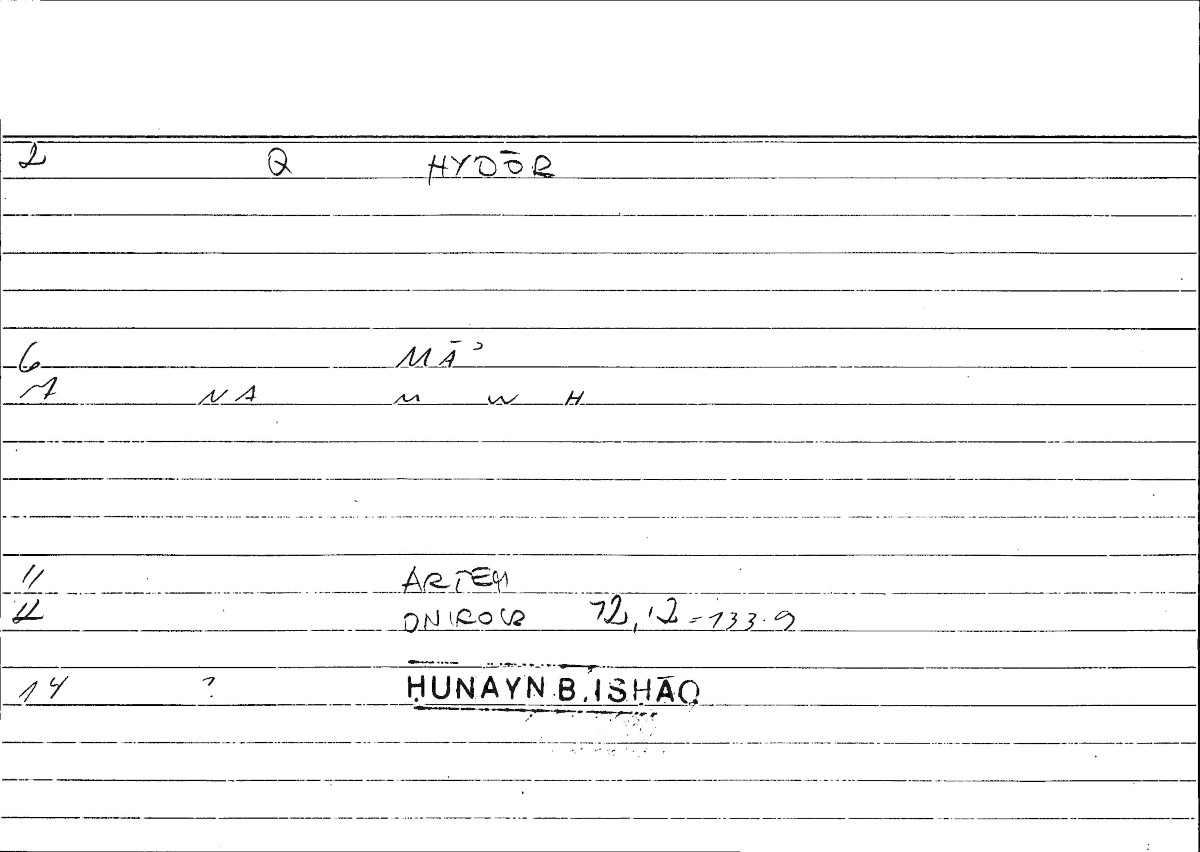 2 Q HYDŌR
6 MĀʾ
7 NA M W H
11 ARTEM
12 ONIROCR 72,12=133.9
14 ? ḤUNAYN B. ISḤĀQ